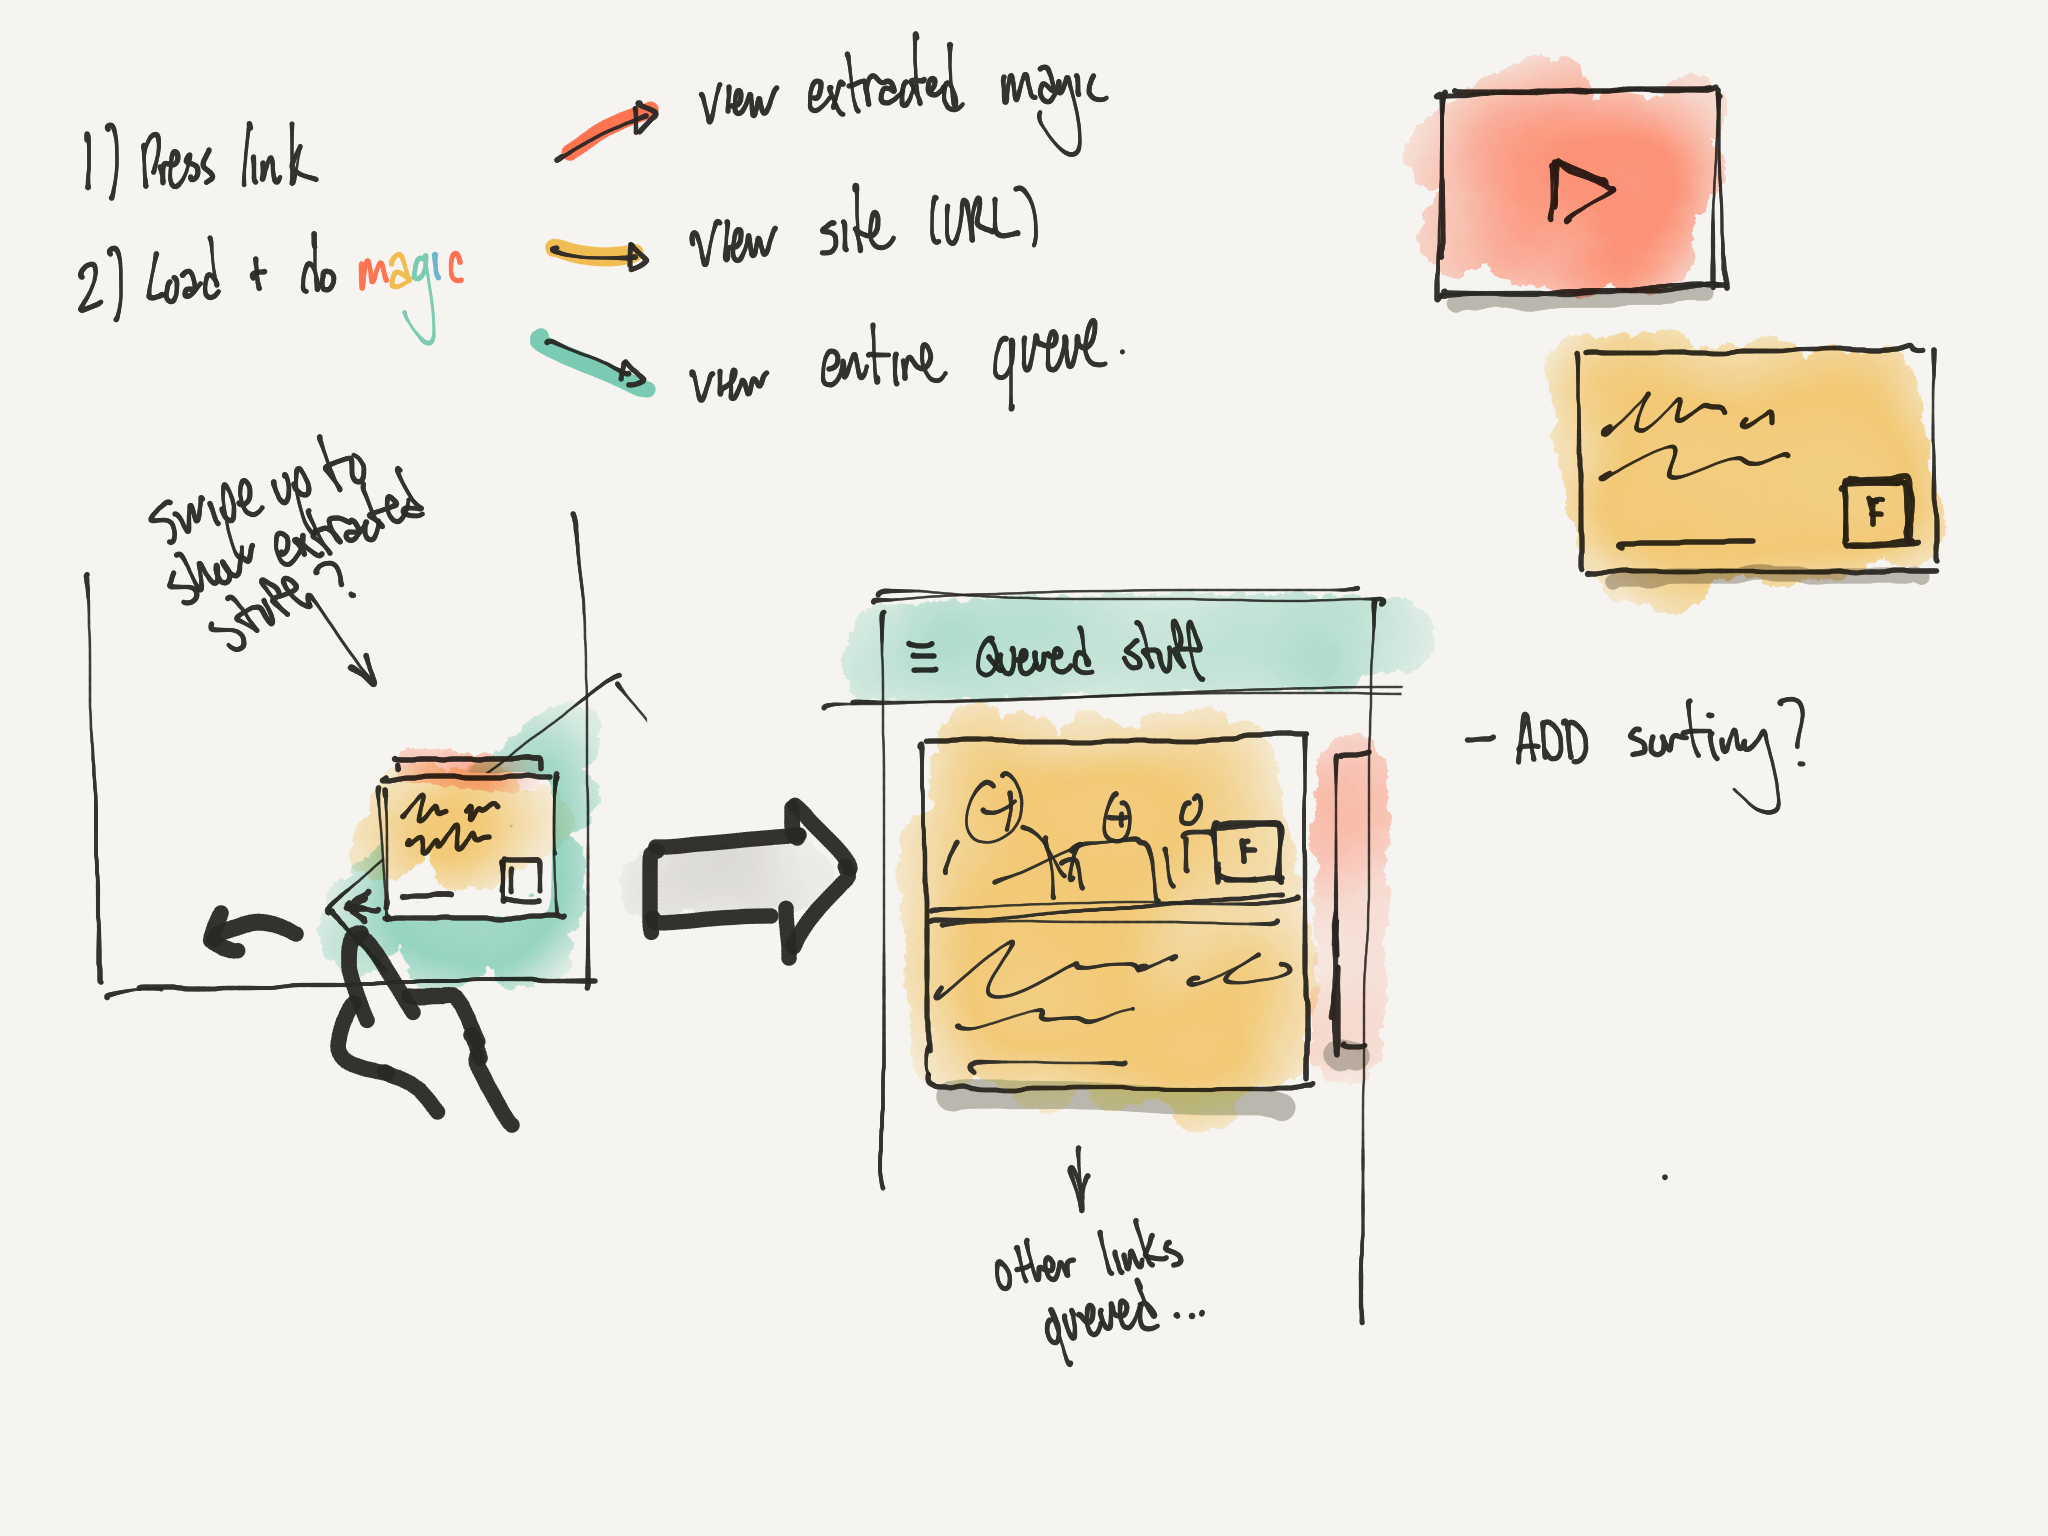 1) Press link
2) Load + do magic
view extracted magic
view site (URL)
view entire queue.
swipe up to
show extracted
stuff?
F
≡ Queued stuff
F
- ADD sorting?
other links
queued...